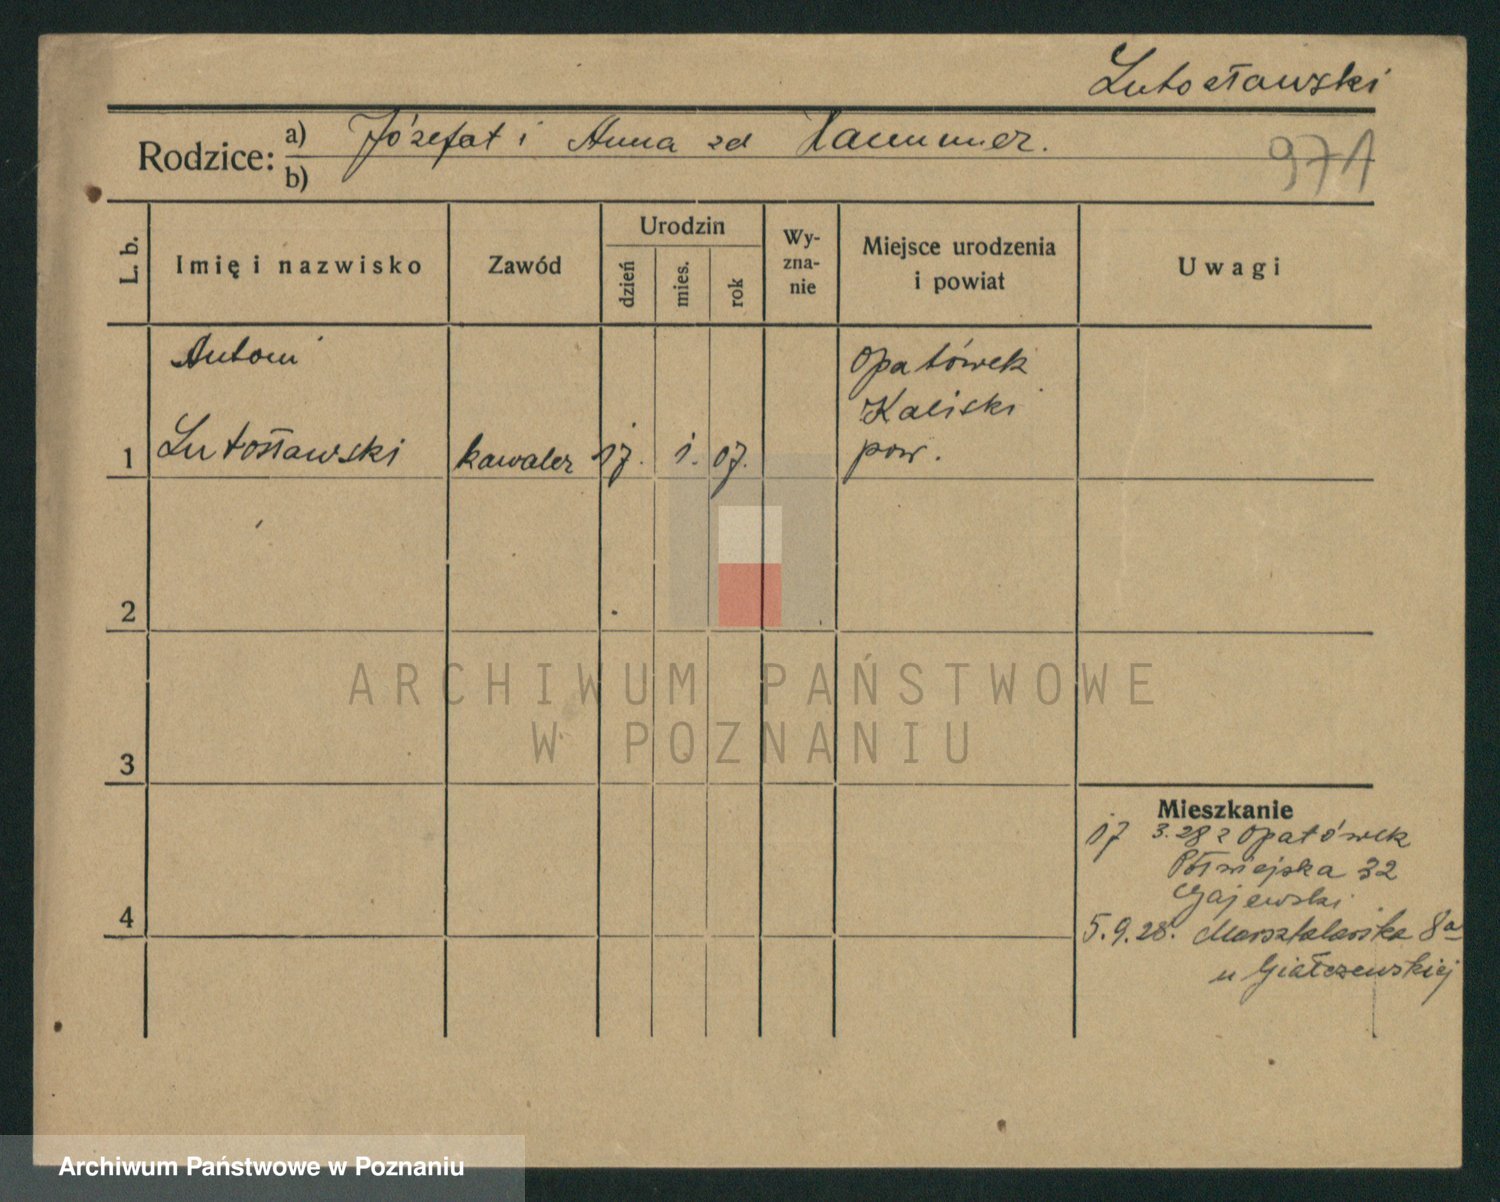 Lutosławski
Rodzice: a) Józefat i Anna zd Hammer.
b)
971
L. b.
Imię i nazwisko
Zawód
Urodzin
dzień
mies.
rok
Wy-
zna-
nie
Miejsce urodzenia
i powiat
Uwagi
Antoni
Lutosławski
1
kawaler
17. 1. 07.
Opatówek
Kaliski
pow.
2
3
4
Mieszkanie
17 3.28 z Opatówek
Półwiejska 32
Gajewski
5.9.28. Masztalarska 8a
u
ARCHIWUM PAŃSTWOWE
W POZNANIU
Archiwum Państwowe w Poznaniu